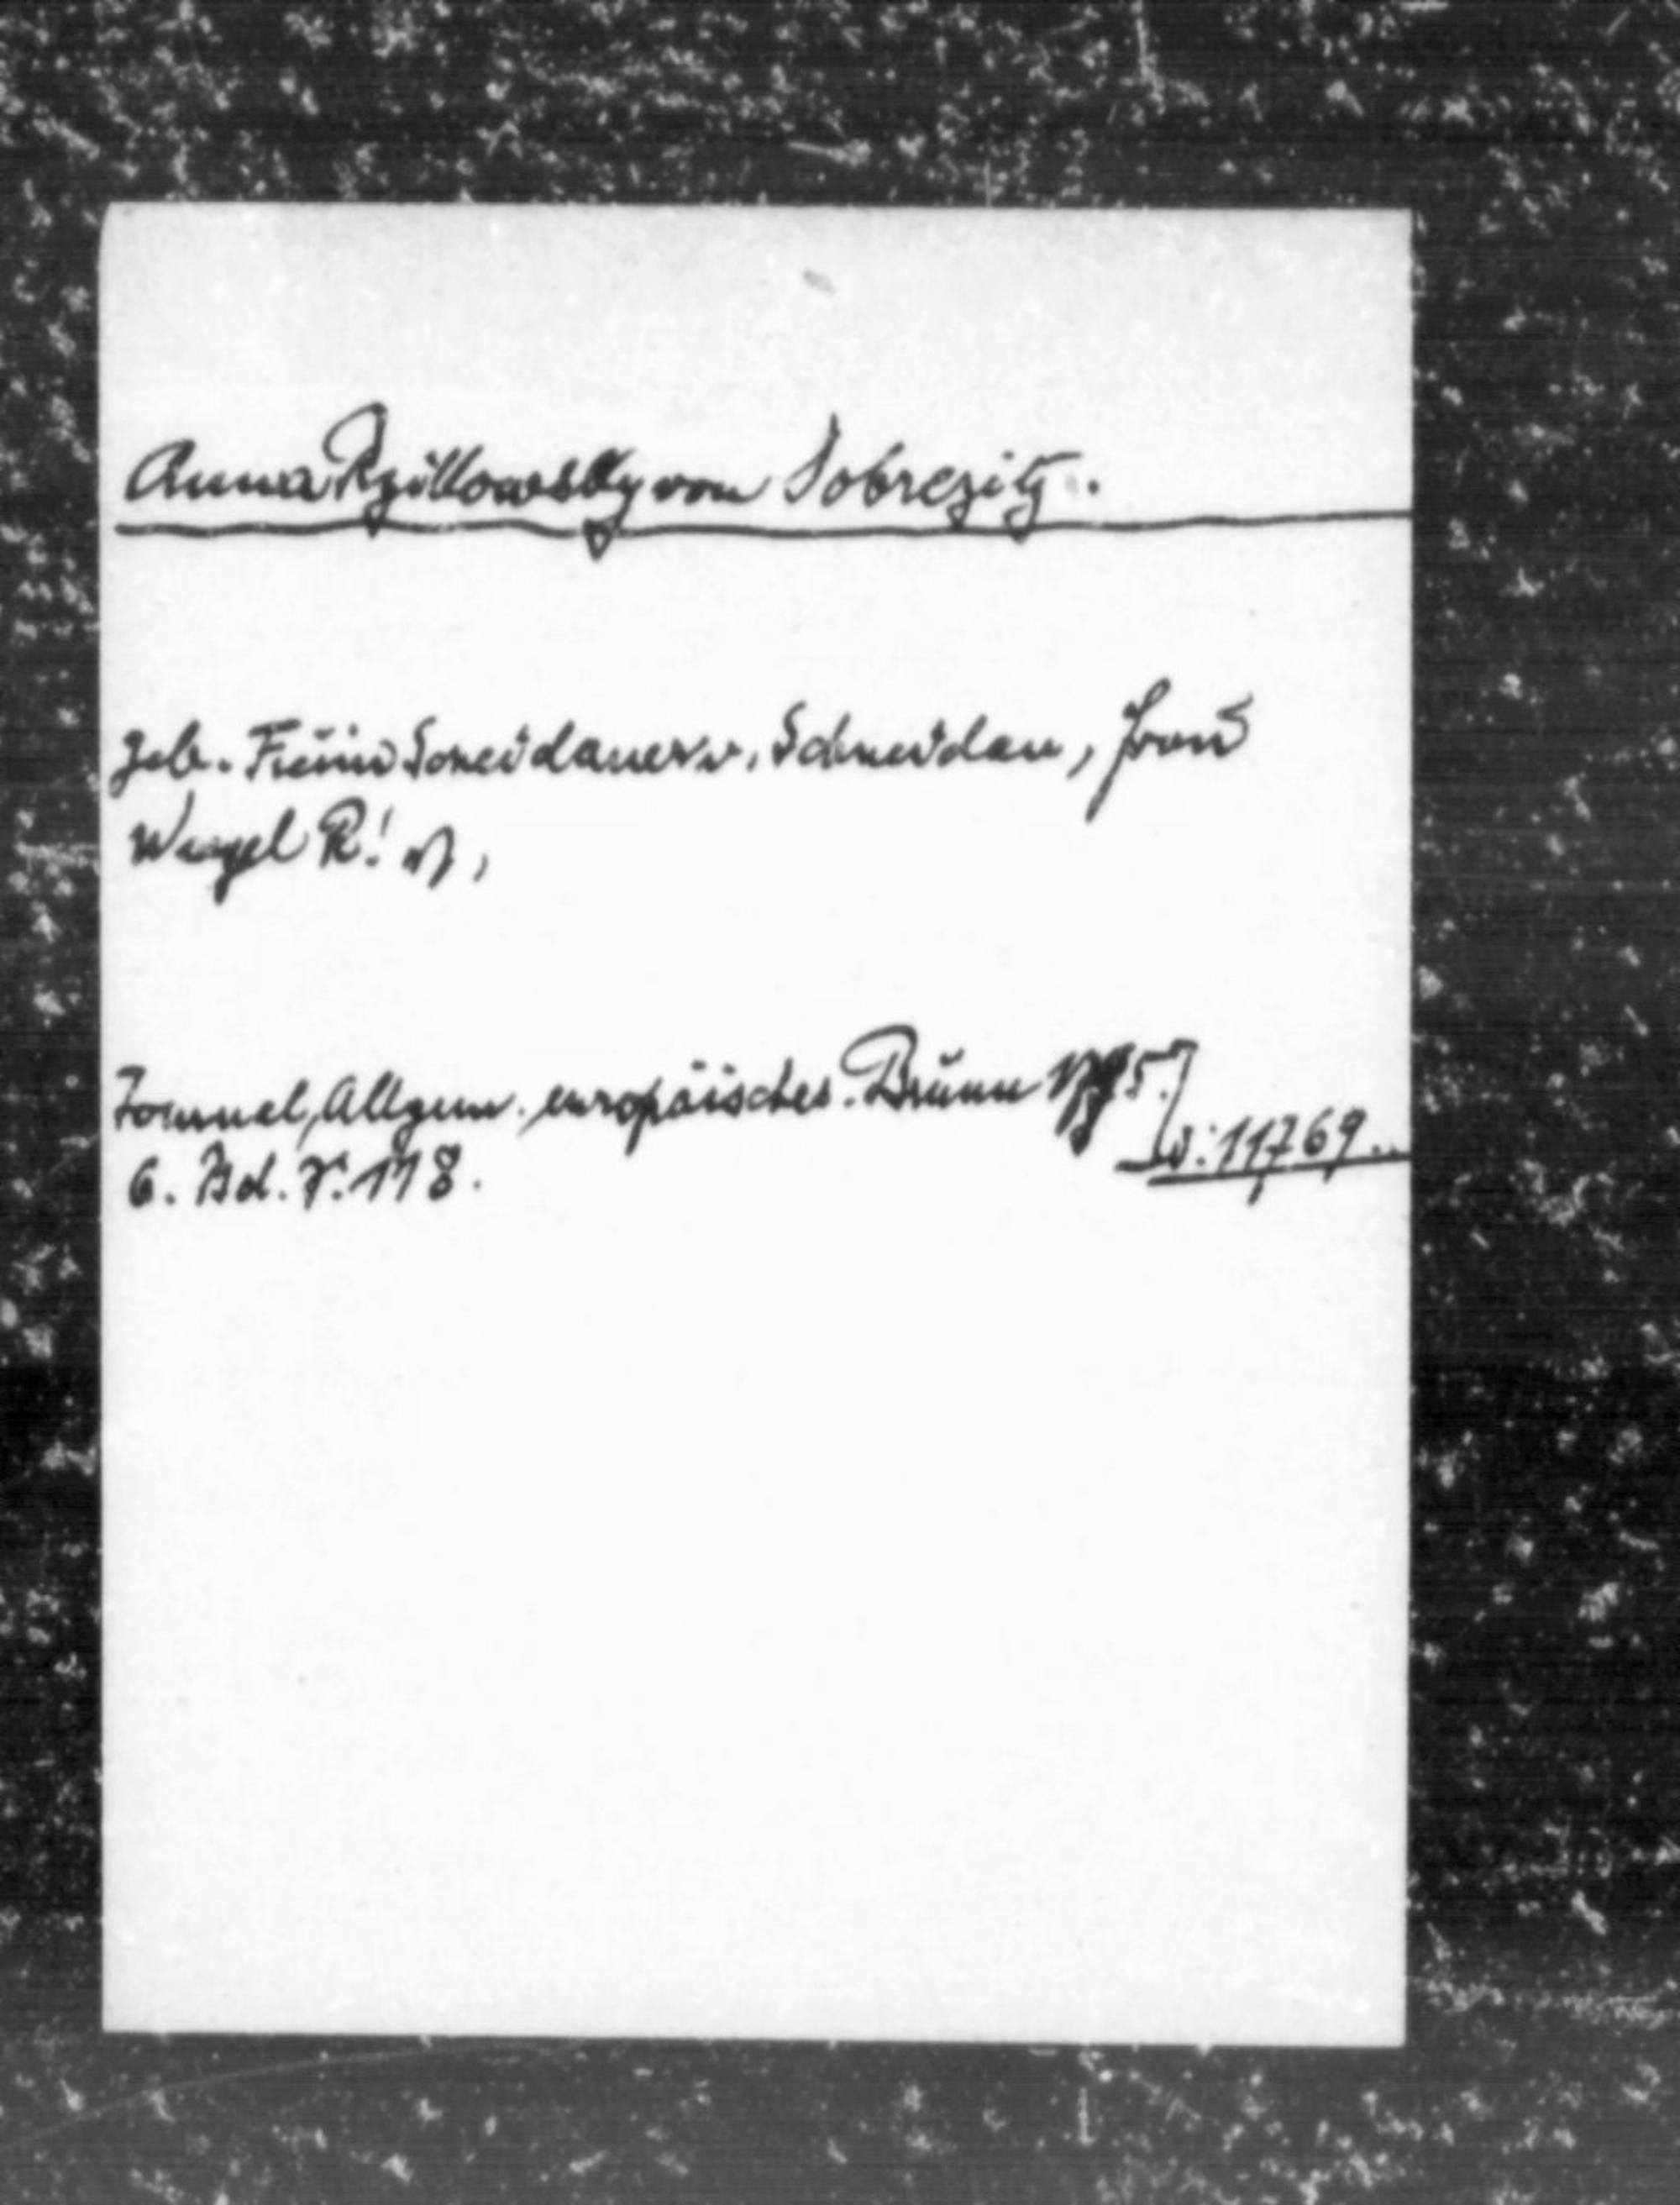 Anna Rzikowsky von Dobrezitz.
geb. Freiin Schneidauer v. Schneidau, Frau
Wenzel R!
Journal, Allgem. europäisches. Brünn 1795.
w: 11769..
6. Bd. S. 118.